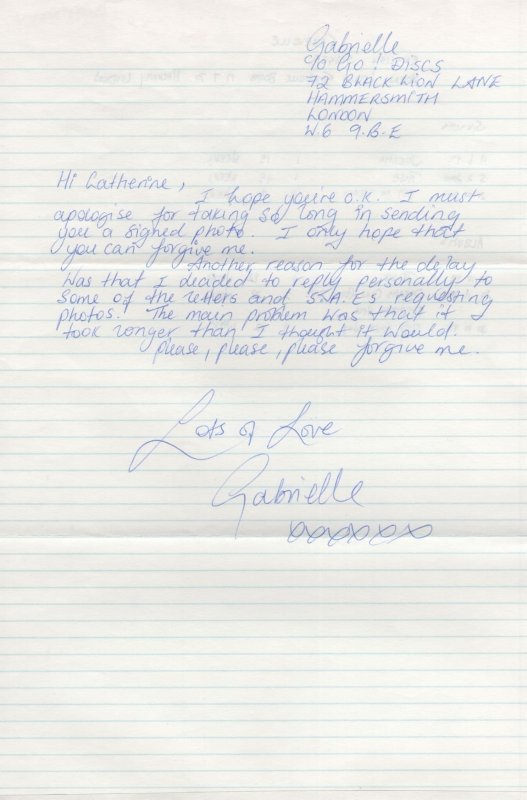 Gabrielle
c/o Go! Discs
72 BLACK LION LANE
HAMMERSMITH
LONDON
W.6 9.B.E
Hi Catherine,
I hope you're o.k. I must
apologise for taking so long in sending
you a signed photo. I only hope that
you can forgive me.
Another reason for the delay
was that I decided to reply personally to
some of the letters and S.A.Es requesting
photos. The main problem was that it
took longer than I thought it would.
please, please, please forgive me.
Lots of Love
Gabrielle
xxxxxx